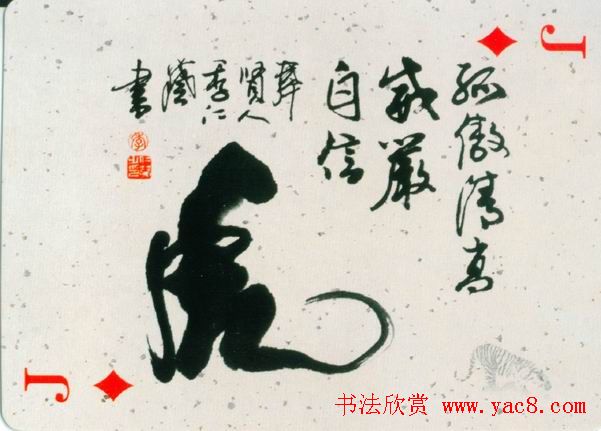 J
孤傲清高
威嚴
自信
贤人
季仁
書
虎
J
书法欣赏 www.yac8.com